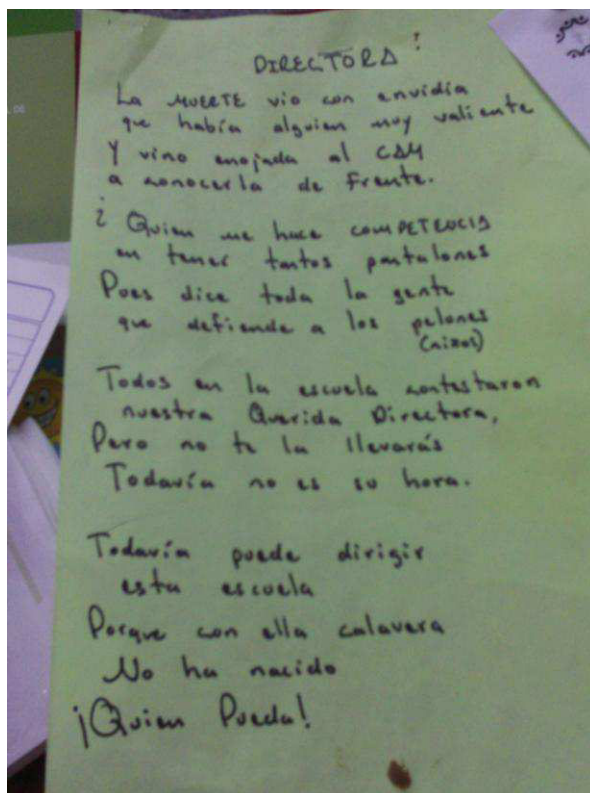 DIRECTORA
La MUERTE vio con envidia
que había alguien muy valiente
Y vino enojada al CAM
a conocerla de Frente.
¿ Quien me hace COMPETENCIA
en tener tantos pantalones
Pues dice toda la gente
que defiende a los pelones
(niños)
Todos en la escuela contestaron
nuestra Querida Directora,
Pero no te la llevarás
Todavía no es su hora.
Todavía puede dirigir
esta escuela
Porque con ella calavera
No ha nacido
¡Quien Pueda!